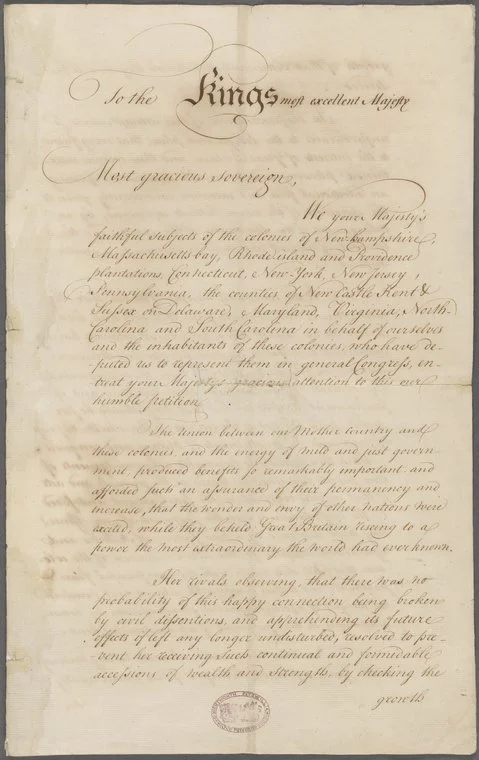 To the Kings most excellent Majesty
Most gracious Sovereign,
We your Majesty's
faithful subjects of the colonies of New-hampshire,
Massachusetts bay, Rhode island and Providence
plantations, Connecticut, New-York, New Jersey,
Pennsylvania, the counties of New Castle Kent &
Sussex on Delaware, Maryland, Virginia, North-
Carolina and South Carolina in behalf of ourselves
and the inhabitants of these colonies, who have de-
puted us to represent them in general Congress, en-
treat your Majestys gracious attention to this our
humble petition.
The union between our Mother Country and
these colonies, and the energy of mild and just govern-
ment, produced benefits so remarkably important and
afforded such an assurance of their permanency and
increase, that the wonder and envy of other nations were
excited, while they beheld Great Britain riseing to a
power the most extraordinary the world had ever known.
Her rivals observing, that there was no
probability of this happy connection being broken
by civil dissentions, and apprehending its future
effects if left any longer undisturbed, resolved to pre-
-vent her receiving such continual and formidable
accessions of wealth and strength, by checking the
growth